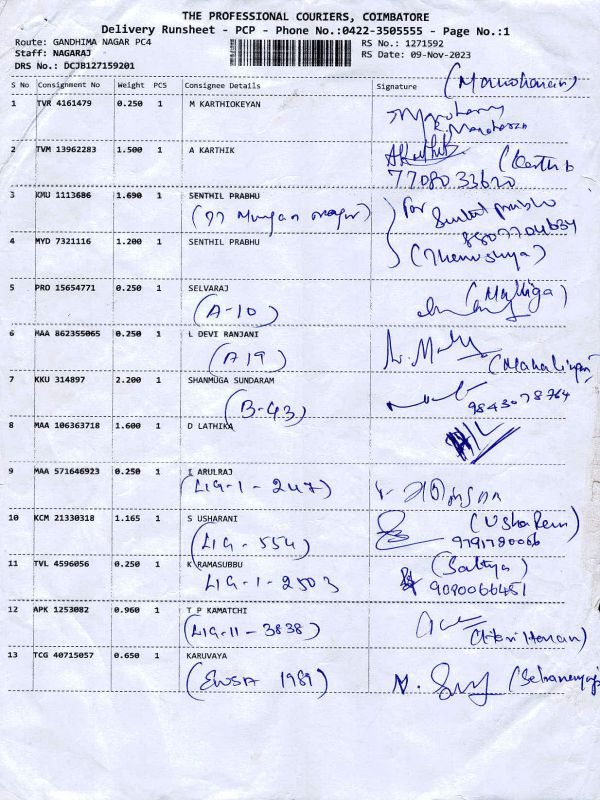 THE PROFESSIONAL COURIERS, COIMBATORE
Delivery Runsheet - PCP - Phone No.:0422-3505555 - Page No.:1
Route: GANDHIMA NAGAR PC4
RS No.: 1271592
Staff: NAGARAJ
RS Date: 09-Nov-2023
DRS No.: DCJB127159201
S No Consignment No Weight PCS Consignee Details Signature
1 TVR 4161479 0.250 1 M KARTHIOKEYAN
2 TVM 13962283 1.500 1 A KARTHIK
AKarthik
7708033620
3 KMU 1113686 1.690 1 SENTHIL PRABHU
For
8807704634
4 MYD 7321116 1.200 1 SENTHIL PRABHU
5 PRO 15654771 0.250 1 SELVARAJ
(Malliga)
(A-10)
6 MAA 862355065 0.250 1 L DEVI RANJANI
(A19)
7 KKU 314897 2.200 1 SHANMUGA SUNDARAM
9843078764
(B-43)
8 MAA 106363718 1.600 1 D LATHIKA
9 MAA 571646923 0.250 1 I ARULRAJ
(LIG-I-247)
10 KCM 21330318 1.165 1 S USHARANI
(LIG-554)
11 TVL 4596056 0.250 1 K RAMASUBBU
(Sathya)
LIG-I-2503
9090066451
12 APK 1253082 0.960 1 T P KAMATCHI
(LIG-II-3838)
13 TCG 40715057 0.650 1 KARUVAYA
(EWSA 1989)